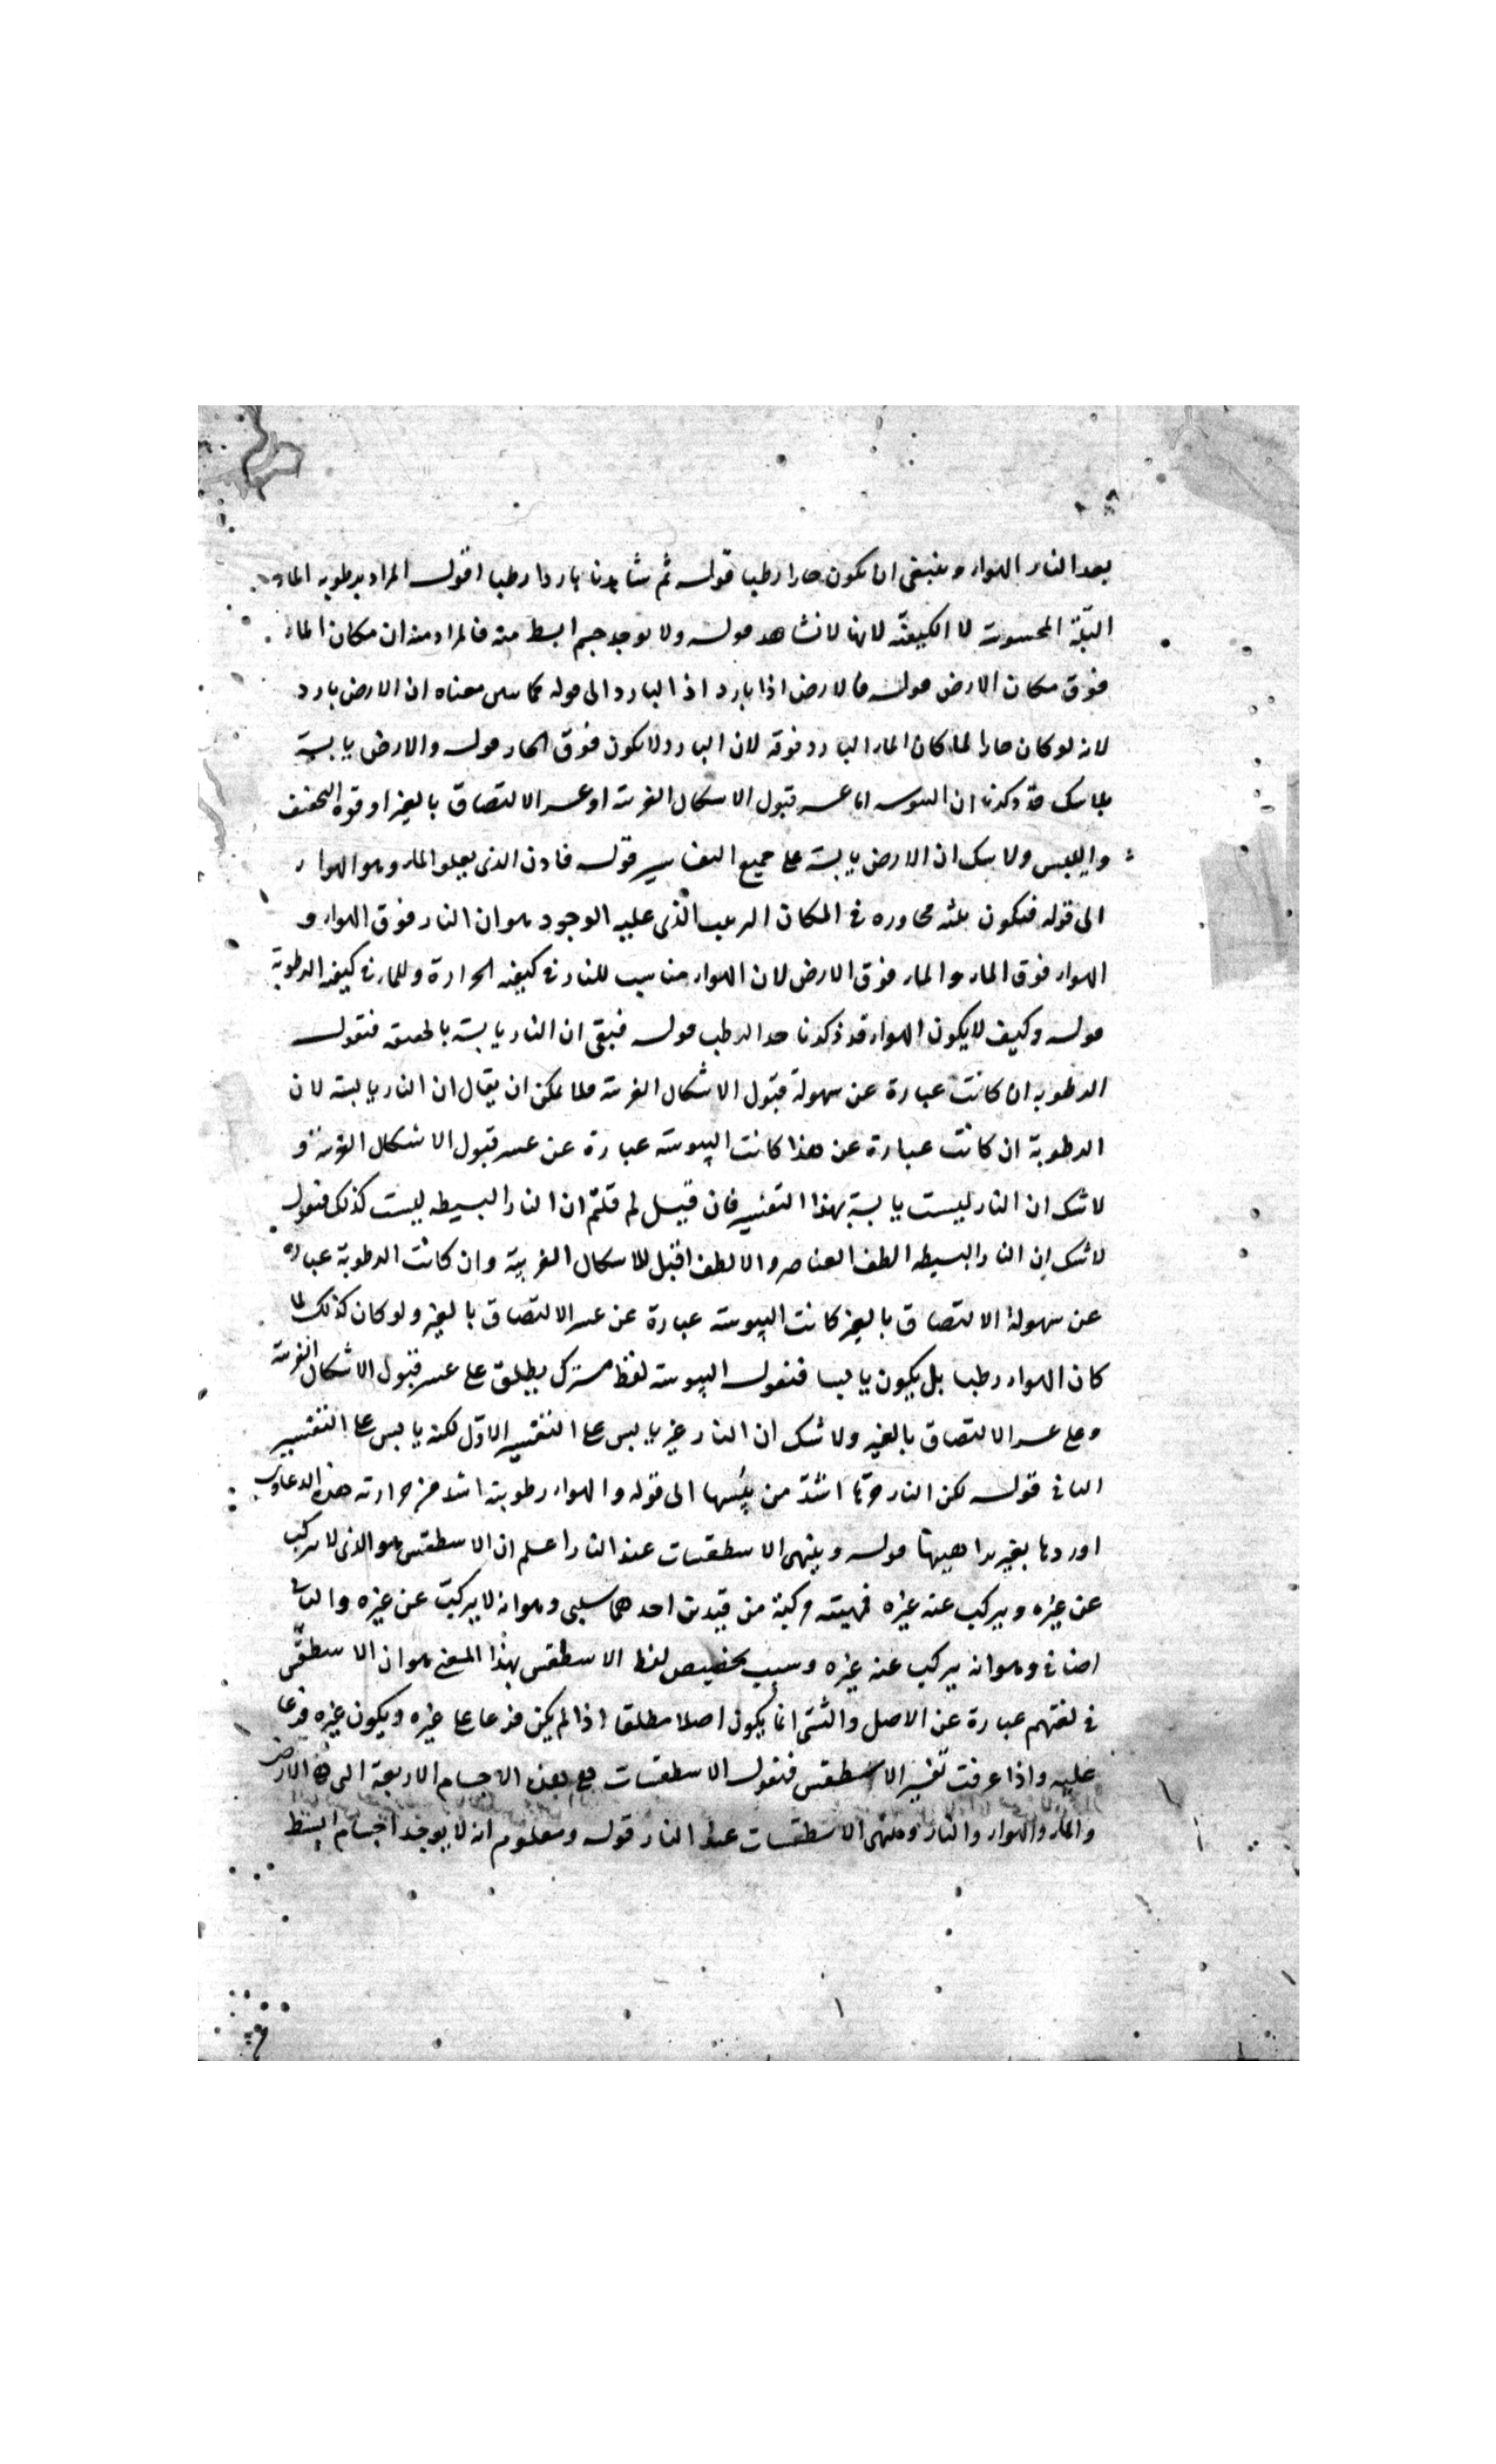 بعد النار الهواء وينبغى ان يكون حارا رطبا قوله ثم شاهدنا باردا رطبا اقول المراد برطوبه الماء
البلّة المحسوسة لا الكيفيّة لانها لا نشاهد قوله ولا يوجد جسم ابسط منه فالمراد منه ان مكان الماء
فوق مكان الارض قوله فالارض اذا بارد اذ البارد الى قوله مماس معناه ان الارض بارد
لانه لو كان حارا لما كان الماء البارد فوقه لان البارد لا يكون فوق الحار قوله والارض يابسة
بلا شك قد ذكرنا ان اليبوسه اما عسر قبول الاشكال الغريبة او عسر الالتصاق بالغير او قوة التجفيف
واليبس ولا شك ان الارض يابسة على جميع التفاسير قوله فاذن الذى يعلو الماء وهو الهواء
الى قوله فيكون مجاوره فى المكان الذى عليه الوجود هو ان النار فوق الهواء و
الهواء فوق الماء والماء فوق الارض لان الهواء مناسب للنار فى كيفية الحرارة وللماء فى كيفية الرطوبة
قوله وكيف لا يكون الهواء قد ذكرنا حد الرطب قوله فبقى ان النار يابسة بالحقيقة فنقول
الرطوبة ان كانت عبارة عن سهولة قبول الاشكال الغريبة فلا يمكن ان يقال ان النار يابسة لان
الرطوبة ان كانت عبارة عن هذا كانت اليبوسة عبارة عن عسر قبول الاشكال الغريبة و
لا شك ان النار ليست يابسة بهذا التفسير فان قيل لم قلتم ان النار البسيطه ليست كذلك فنقول
لا شك ان النار البسيطه الطف العناصر والالطف اقبل للاشكال الغريبة وان كانت الرطوبة عباره
عن سهولة الالتصاق بالغير كانت اليبوسة عبارة عن عسر الالتصاق بالغير ولو كان كذلك لما
كان الهواء رطبا بل يكون يابسا فنقول اليبوسة لفظ مشترك يطلق على عسر قبول الاشكال الغريبة
وعلى عسر الالتصاق بالغير ولا شك ان النار غير يابس على التفسير الاوّل لكنه يابس على التفسير
الثانى قوله لكن النار حرّها اشدّ من يبسها الى قوله والهواء رطوبته اشد من حرارته هذه الدعاوى
اوردها بغير براهينها قوله وينتهى الاسطقسات عند النار اعلم ان الاسطقس هو الذى لا يتركب
عن غيره ويتركب عنه غيره فهيته مركبة من قيدين احدهما سلبى وهو انه لا يتركب عن غيره والثانى
اضافى وهو انه يتركب عنه غيره وسبب تخصيص لفظ الاسطقس بهذا المعنى هو ان الاسطقس
فى لغتهم عبارة عن الاصل والشىء انما يكون اصلا مطلقا اذا لم يكن فرعا على غيره ويكون غيره فرعا
عليه واذا عرفت تفسير الاسطقس فنقول الاسطقسات هى هذه الاجسام الاربعة الارض
والماء والهواء والنار ومنتهى الاسطقسات عند النار قوله ومعلوم انه لا يوجد اجسام ابسط